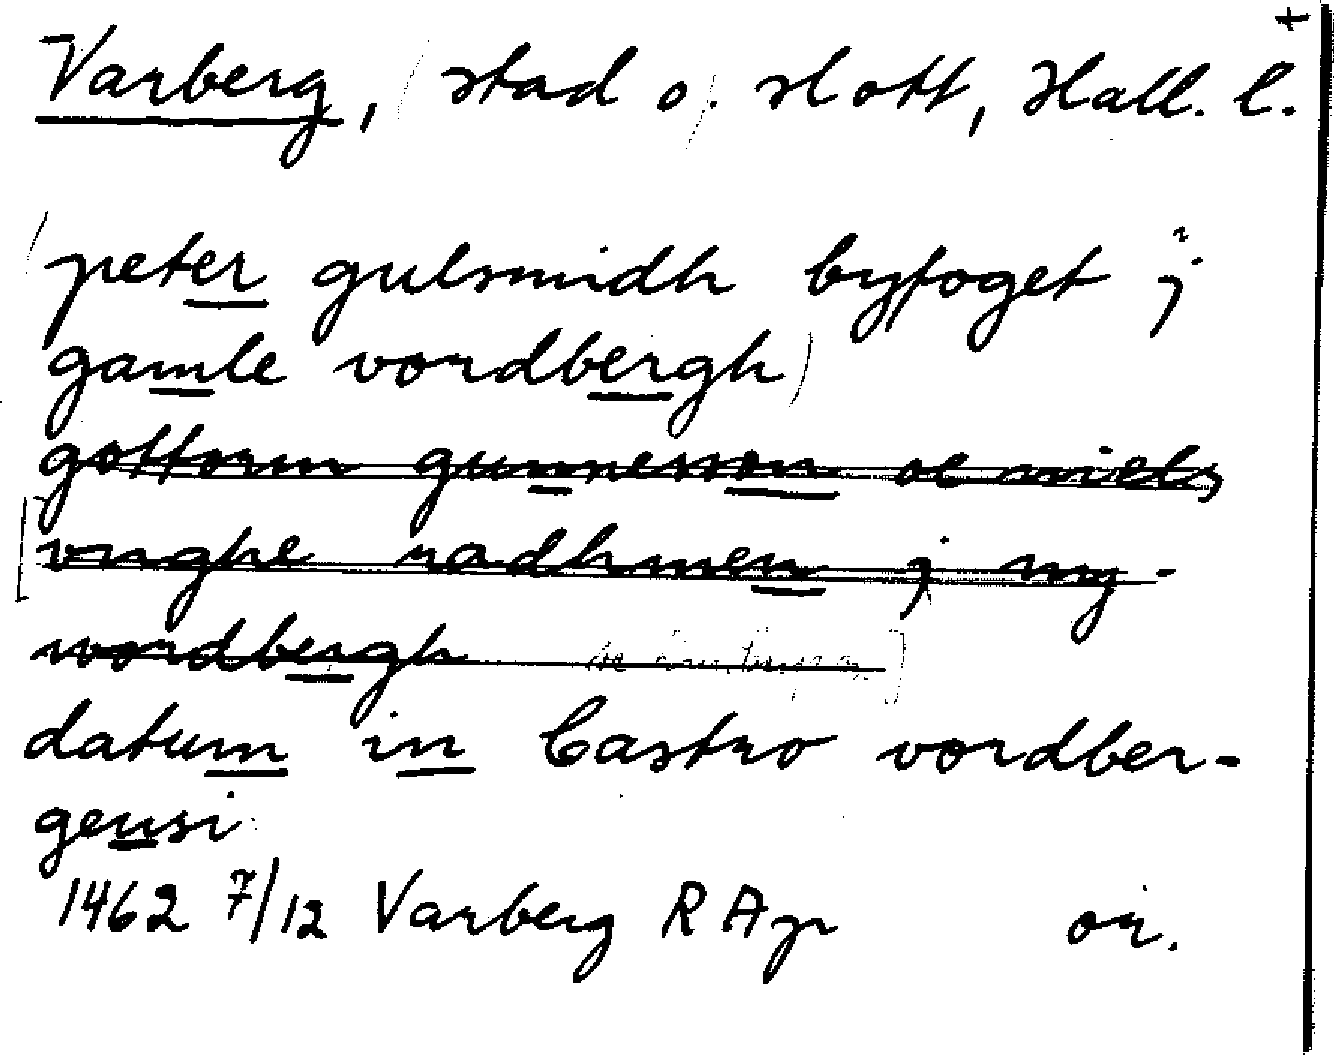 Varberg, stad o. slott, Hall. l.
peter gulsmidh byfoget j
gamle vordbergh
gottorm gunnesson oc niels
vnghe radhmen j ny-
wordbergh
datum in Castro vordber-
gensi
1462 7/12 Varberg RAp or.